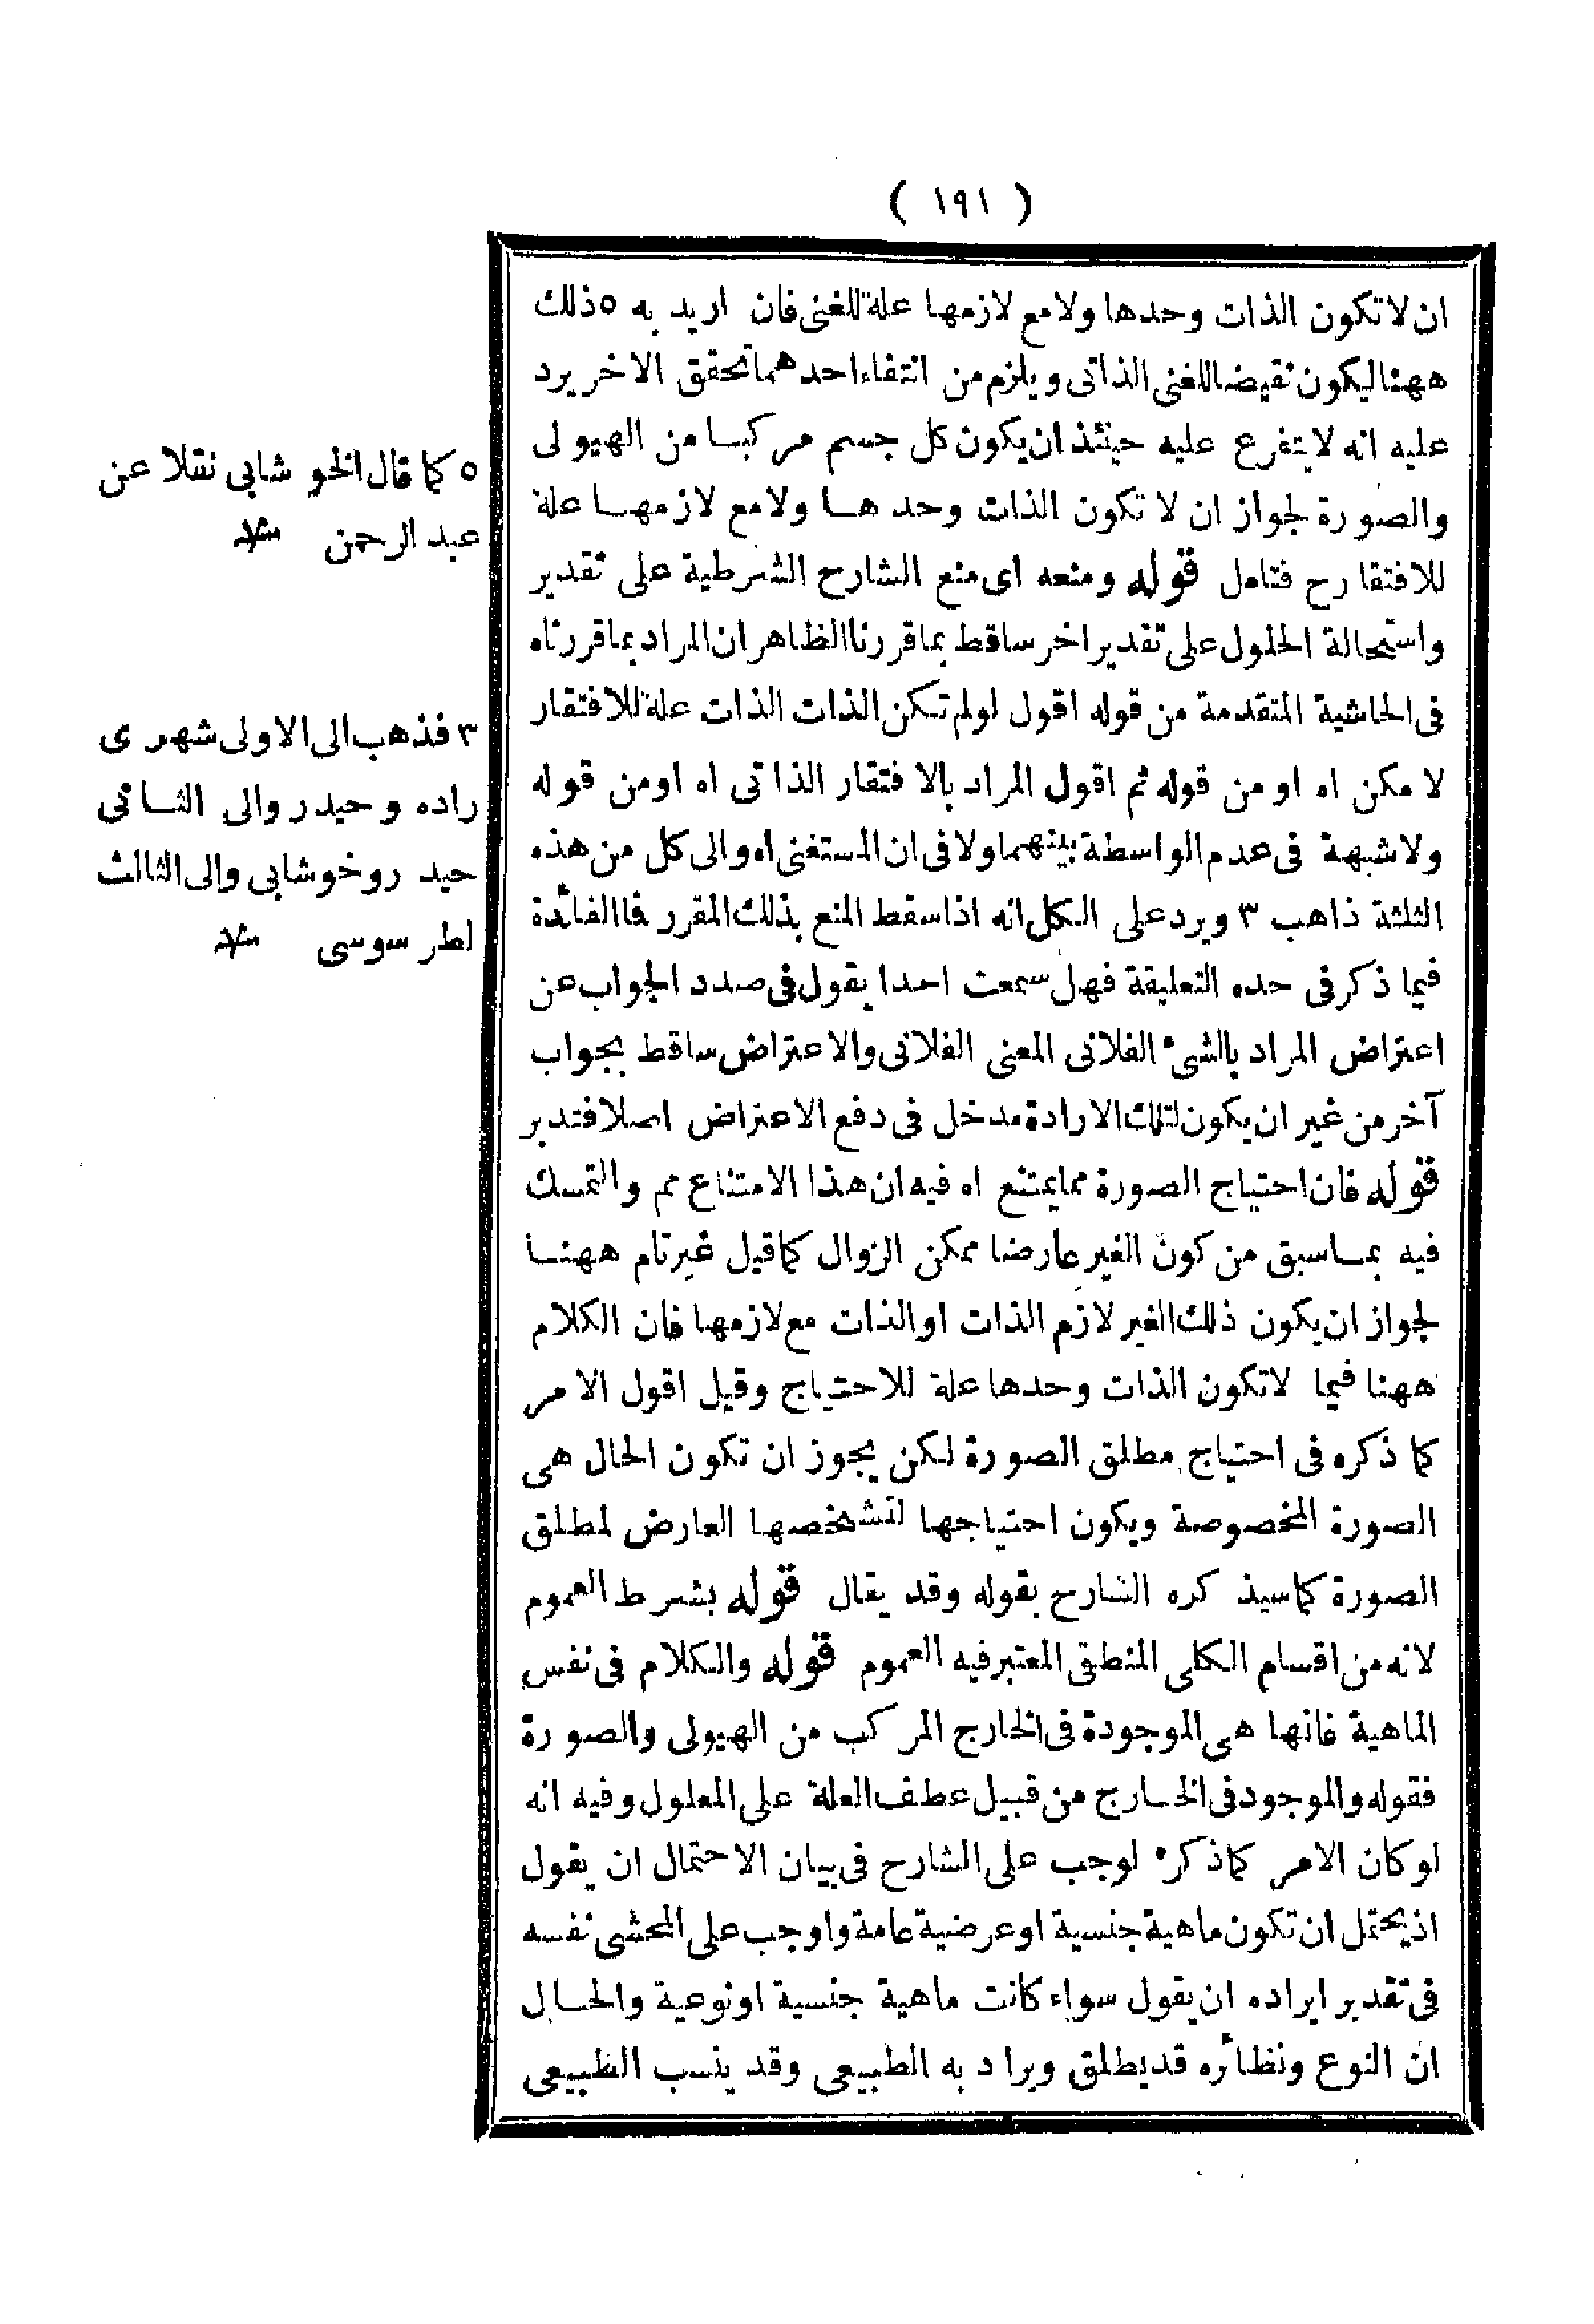 ( ١٩١ )
ان لا تكون الذات وحدها ولا مع لازمها علة للغنى فان اريد به ٥ ذلك
ههنا ليكون نقيضا للغنى الذاتى ويلزم من انتفاء احدهما تحقق الاخر يرد
عليه انه لا يتفرع عليه حينئذ ان يكون كل جسم مركبا من الهيولى
والصورة لجواز ان لا تكون الذات وحدها ولا مع لازمها علة
للافتقار ح فتامل قوله ومنعه اى منع الشارح الشرطية على تقدير
واستحالة الحلول على تقدير اخر ساقط بما قررنا الظاهر ان المراد بما قررناه
فى الحاشية المتقدمة من قوله اقول لو لم تكن الذات الذات علة للافتقار
لا مكن اه او من قوله ثم اقول المراد بالافتقار الذاتى اه او من قوله
ولا شبهة فى عدم الواسطة بينهما ولا فى ان المستغنى اه والى كل من هذه
الثلثة ذاهب ٣ ويرد على الكل انه اذا سقط المنع بذلك المقرر فا الفائدة
فيما ذكر فى حده التعليقة فهل سمعت احدا يقول فى صدد الجواب عن
اعتراض المراد بالشىء الفلانى المعنى الفلانى والاعتراض ساقط بجواب
آخر من غير ان يكون لتلك الارادة مدخل فى دفع الاعتراض اصلا فتدبر
قوله فان احتياج الصورة مما يمتنع اه فيه ان هذا الامتناع مم والتمسك
فيه بما سبق من كون الغير عارضا ممكن الزوال كما قيل غير تام ههنا
لجواز ان يكون ذلك الغير لازم الذات او الذات مع لازمها فان الكلام
ههنا فيما لا تكون الذات وحدها علة للاحتياج وقيل اقول الامر
كما ذكره فى احتياج مطلق الصورة لكن يجوز ان تكون الحال هى
الصورة المخصوصة ويكون احتياجها لتشخصها العارض لمطلق
الصورة كما سيذكره الشارح بقوله وقد يقال قوله بشرط العموم
لانه من اقسام الكلى المنطقى المعتبر فيه العموم قوله والكلام فى نفس
الماهية فانها هى الموجودة فى الخارج المركب من الهيولى والصورة
فقوله والموجود فى الخارج من قبيل عطف العلة على المعلول وفيه انه
لو كان الامر كما ذكره لوجب على الشارح فى بيان الاحتمال ان يقول
اذ يحتمل ان تكون ماهية جنسية او عرضية عامة واوجب على المحشى نفسه
فى تقدير ايراده ان يقول سواء كانت ماهية جنسية او نوعية والحال
ان النوع ونظائره قد يطلق ويراد به الطبيعى وقد ينسب الطبيعى
٥ كما قال الخوشابى نقلا عن
عبد الرحمن
٣ فذهب الى الاولى شهرى
راده وحيدر والى الثانى
حيدر وخوشابى والى الثالث
لطرسوسى